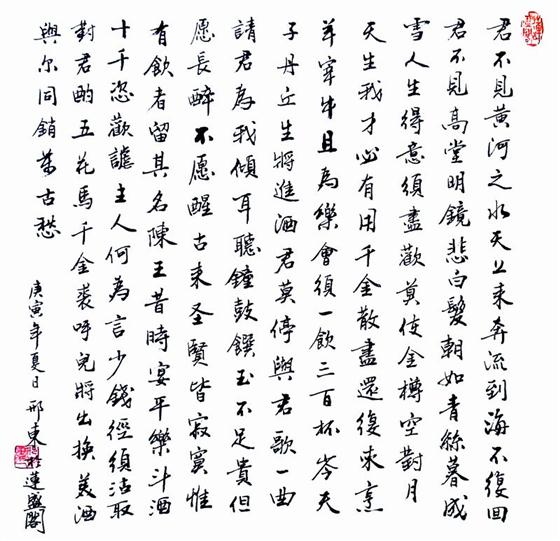 君不見黃河之水天上来奔流到海不復回
君不見高堂明鏡悲白髮朝如青絲暮成
雪人生得意須盡歡莫使金樽空對月
天生我才必有用千金散盡還復來烹
羊宰牛且為樂會須一飲三百杯岑夫
子丹丘生將進酒君莫停與君歌一曲
請君為我傾耳聽鐘鼓饌玉不足貴但
愿長醉不愿醒古来圣賢皆寂寞惟
有飲者留其名陳王昔時宴平樂斗酒
十千恣歡謔主人何為言少錢徑須沽取
對君酌五花馬千金裘呼兒將出換美酒
與尔同銷萬古愁
庚寅年夏日邢東於蓮盛閣